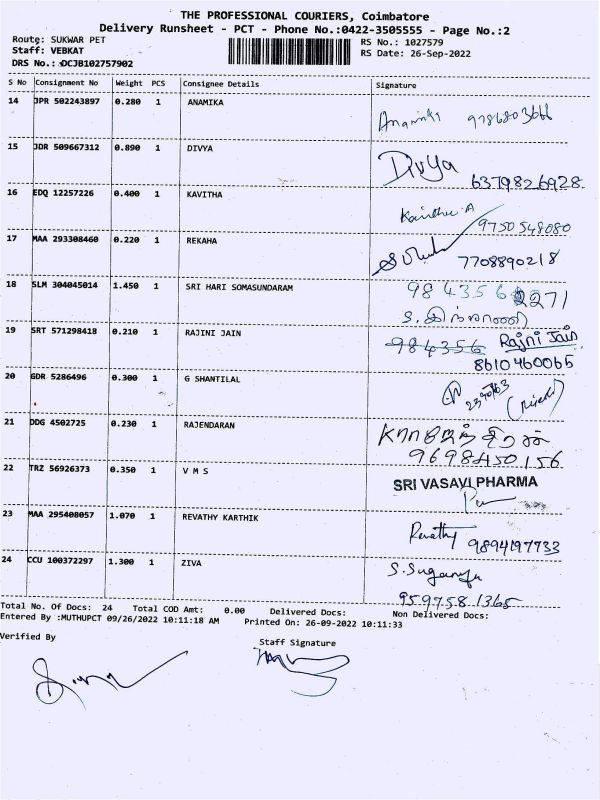 THE PROFESSIONAL COURIERS, Coimbatore
Delivery Runsheet - PCT - Phone No.:0422-3505555 - Page No.:2
Route: SUKWAR PET
Staff: VEBKAT
DRS No.: DCJB102757902
RS No.: 1027579
RS Date: 26-Sep-2022
S No Consignment No Weight PCS Consignee Details Signature
14 JPR 502243897 0.280 1 ANAMIKA
Anamika 9786803666
15 JDR 509667312 0.890 1 DIVYA
Divya 6379826928
16 EDQ 12257226 0.400 1 KAVITHA
Kavitha A 9750548080
17 MAA 293308460 0.220 1 REKAHA
7708890218
18 SLM 304045014 1.450 1 SRI HARI SOMASUNDARAM
2271
19 SRT 571298418 0.210 1 RAJINI JAIN
984356 Rajni Jain
8610460065
20 GDR 5286496 0.300 1 G SHANTILAL
21 DDG 4502725 0.230 1 RAJENDARAN
9698450156
22 TRZ 56926373 0.350 1 V M S
SRI VASAVI PHARMA
23 MAA 295408057 1.070 1 REVATHY KARTHIK
Revathy 9894197733
24 CCU 100372297 1.300 1 ZIVA
S. Suganya
9597581365
Total No. Of Docs: 24 Total COD Amt: 0.00 Delivered Docs: Non Delivered Docs:
Entered By :MUTHUPCT 09/26/2022 10:11:18 AM Printed On: 26-09-2022 10:11:33
Verified By
Staff Signature